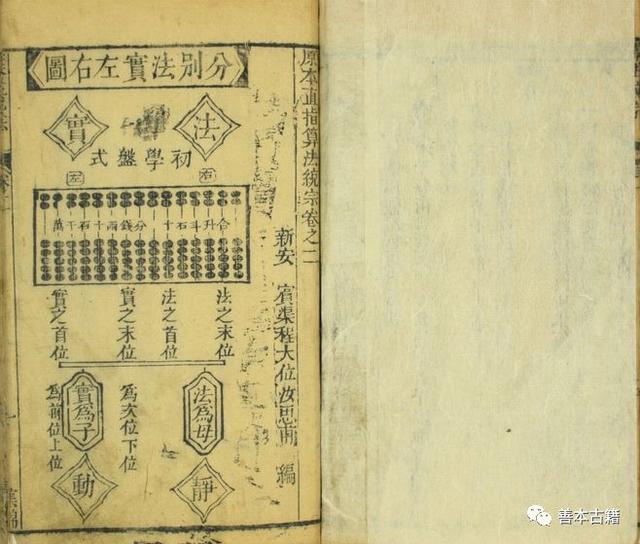 原本直指算法統宗卷之二
新安 賓渠程大位汝思甫 編
分別法實左右圖
法 實
初學盤式
右 左
合升斗石十 分錢兩十石千萬
法之末位
法之首位
實之末位
實之首位
法為母
為次位下位
實為子
為前位上位
靜
動
善本古籍